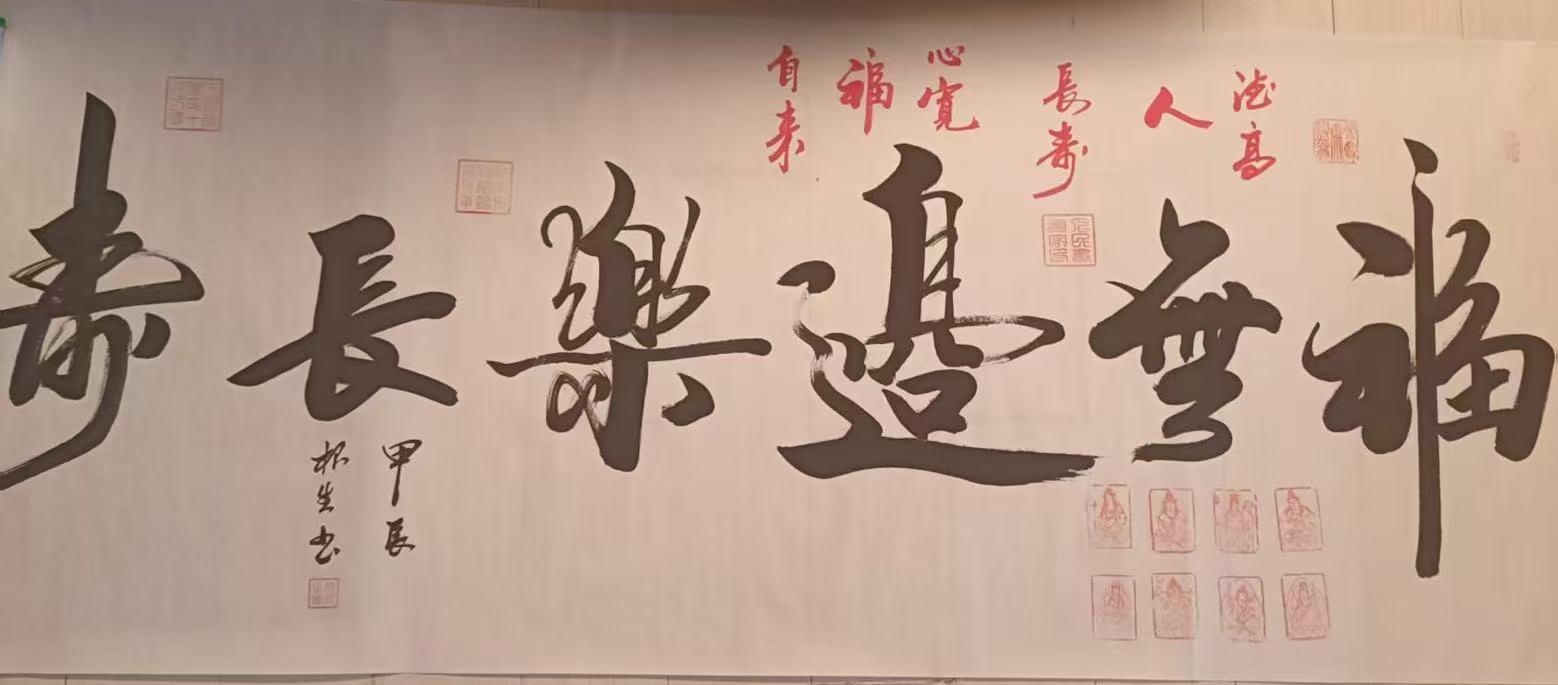 福無邊樂長壽
德高
人
長壽
心寬
福
自来
甲辰
根生书